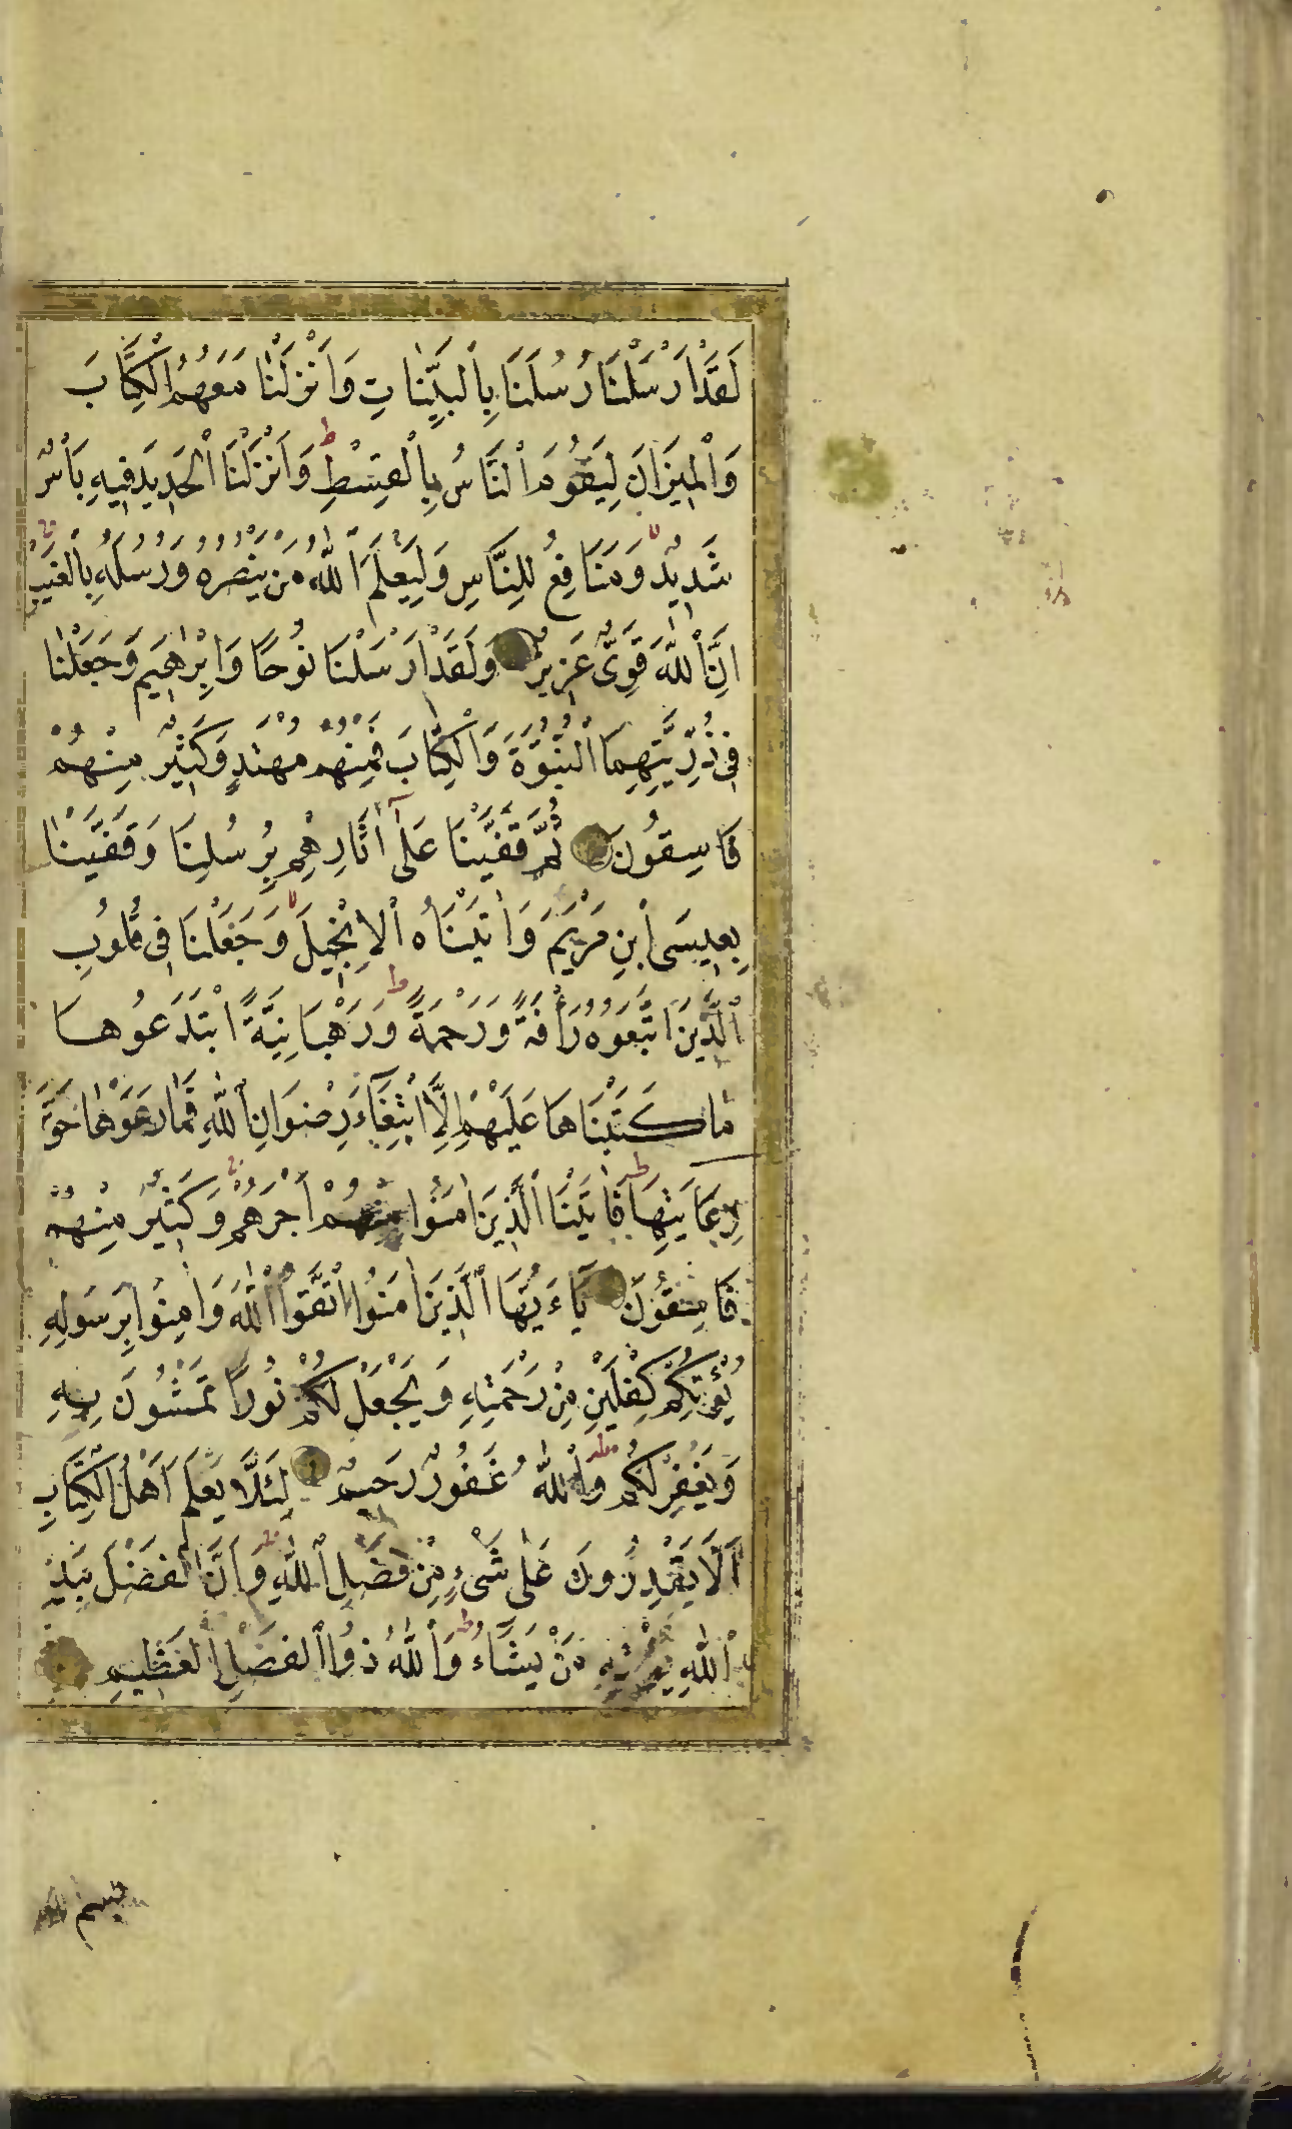 لَقَدْ اَرْسَلْنَا رُسُلَنَا بِالْبَيِّنَاتِ وَاَنْزَلْنَا مَعَهُمُ الْكِتَابَ
وَالْمِيزَانَ لِيَقُومَ النَّاسُ بِالْقِسْطِ ط وَاَنْزَلْنَا الْحَدِيدَ فِيهِ بَاْسٌ
شَدِيدٌ وَمَنَافِعُ لِلنَّاسِ وَلِيَعْلَمَ اللّٰهُ مَنْ يَنْصُرُهُ وَرُسُلَهُ بِالْغَيْبِ
اِنَّ اللّٰهَ قَوِىٌّ عَزِيزٌ وَلَقَدْ اَرْسَلْنَا نُوحًا وَاِبْرٰهِيمَ وَجَعَلْنَا
فِى ذُرِّيَّتِهِمَا النُّبُوَّةَ وَالْكِتَابَ فَمِنْهُمْ مُهْتَدٍ وَكَثِيرٌ مِنْهُمْ
فَاسِقُونَ ثُمَّ قَفَّيْنَا عَلٰٓى اٰثَارِهِمْ بِرُسُلِنَا وَقَفَّيْنَا
بِعِيسَى ابْنِ مَرْيَمَ وَاٰتَيْنَاهُ الْاِنْجِيلَ وَجَعَلْنَا فِى قُلُوبِ
الَّذِينَ اتَّبَعُوهُ رَاْفَةً وَرَحْمَةً ط وَرَهْبَانِيَّةً ابْتَدَعُوهَا
مَا كَتَبْنَاهَا عَلَيْهِمْ اِلَّا ابْتِغَٓاءَ رِضْوَانِ اللّٰهِ فَمَا رَعَوْهَا حَقَّ
رِعَايَتِهَا فَاٰتَيْنَا الَّذِينَ اٰمَنُوا مِنْهُمْ اَجْرَهُمْ وَكَثِيرٌ مِنْهُمْ
فَاسِقُونَ يَاءَيُّهَا الَّذِينَ اٰمَنُوا اتَّقُوا اللّٰهَ وَاٰمِنُوا بِرَسُولِهِ
يُؤْتِكُمْ كِفْلَيْنِ مِنْ رَحْمَتِهِ وَيَجْعَلْ لَكُمْ نُورًا تَمْشُونَ بِهِ
وَيَغْفِرْ لَكُمْ ط وَاللّٰهُ غَفُورٌ رَحِيمٌ لِئَلَّا يَعْلَمَ اَهْلُ الْكِتَابِ
اَلَّا يَقْدِرُونَ عَلٰى شَىْءٍ مِنْ فَضْلِ اللّٰهِ وَاَنَّ الْفَضْلَ بِيَدِ
اللّٰهِ يُؤْتِيهِ مَنْ يَشَٓاءُ ط وَاللّٰهُ ذُوا الْفَضْلِ الْعَظِيمِ
بسم